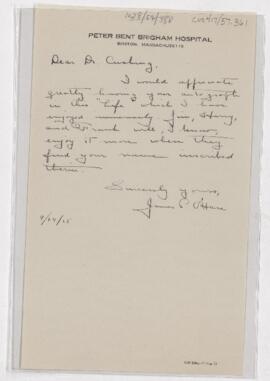 1628/54/380
CUS417/57.361
PETER BENT BRIGHAM HOSPITAL
BOSTON, MASSACHUSETTS
Dear Dr. Cushing,
I would appreciate
greatly having your autograph
in this "Life" which I have
enjoyed immensely. Jim, Harry,
and Frank will, I know,
enjoy it more when they
find your name inscribed
therein.
Sincerely yours,
James P. O'Hare
9/24/25